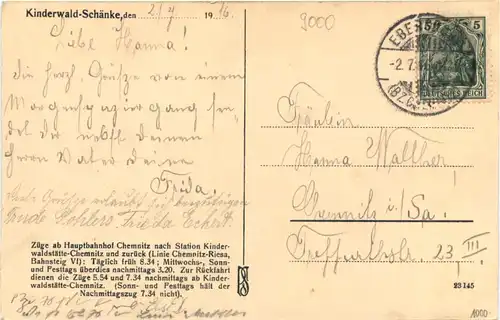 Kinderwald-Schänke, den 2/7 1916.
9000
Liebe Hanna!
Die herzl. Grüße von einem
Morgenspaziergang sen-
det dir nebst deinem
Herrn Vater deine
Frida.
Viele Grüße erlaubt sich beizufügen
Trude Frieda Eckert.
Züge ab Hauptbahnhof Chemnitz nach Station Kinder-
waldstätte-Chemnitz und zurück (Linie Chemnitz-Riesa,
Bahnsteig VI): Täglich früh 8.34; Mittwochs-, Sonn-
und Festtags überdies nachmittags 3.20. Zur Rückfahrt
dienen die Züge 5.54 und 7.34 nachmittags ab Kinder-
waldstätte-Chemnitz. (Sonn- und Festtags hält der
Nachmittagszug 7.34 nicht).
5
DEUTSCHES REICH
EBERSD
-2.7.
Fräulein
Hanna Walther
Chemnitz i/Sa.
23 III
23145
1000-